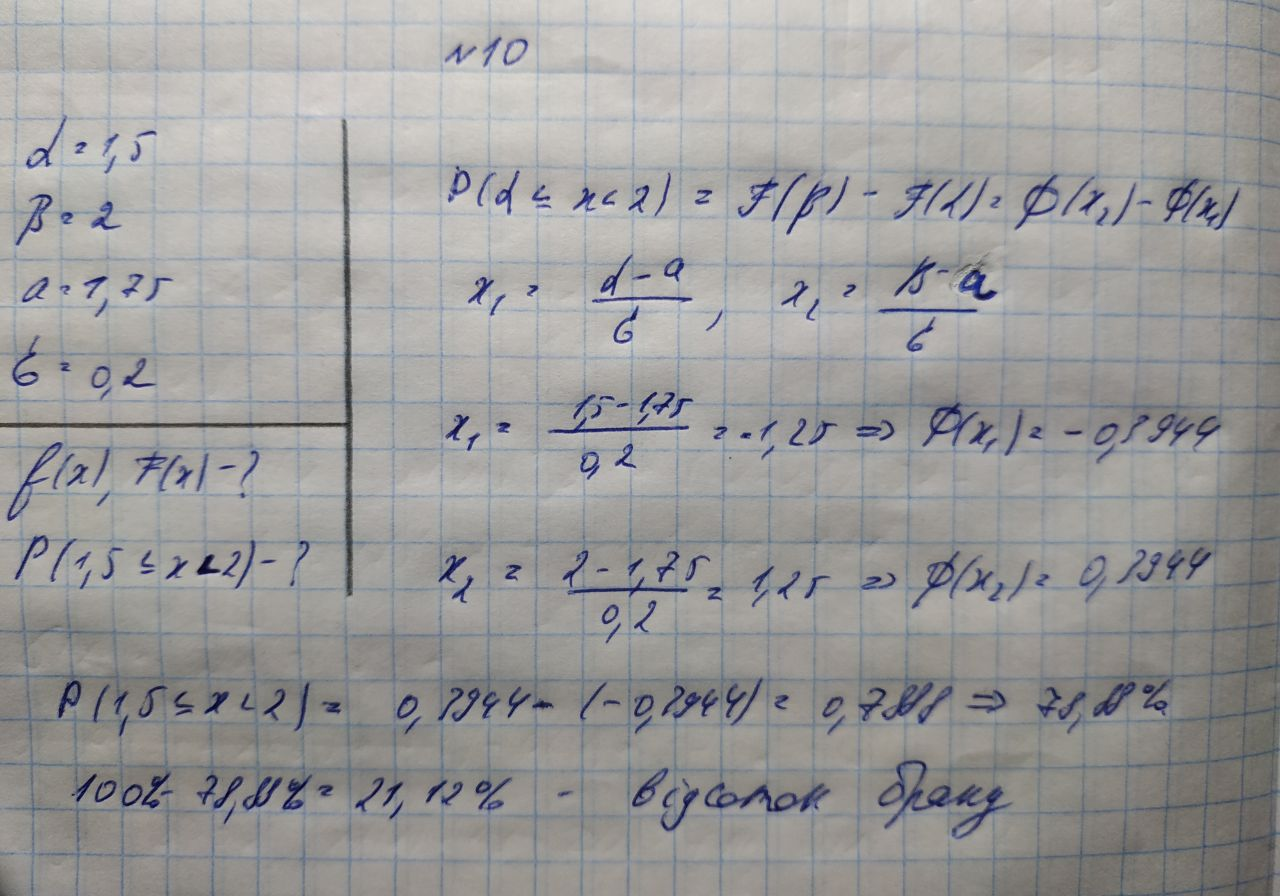 №10
α = 1,5
β = 2
a = 1,75
σ = 0,2
f(x), F(x) - ?
P(1,5 ≤ x < 2) - ?
P(α ≤ x < 2) = F(β) - F(α) = Φ(x₂) - Φ(x₁)
x₁ = (α - a)/σ , x₂ = (β - a)/σ
x₁ = (1,5 - 1,75)/0,2 = -1,25 ⇒ Φ(x₁) = -0,3944
x₂ = (2 - 1,75)/0,2 = 1,25 ⇒ Φ(x₂) = 0,3944
P(1,5 ≤ x < 2) = 0,3944 - (-0,3944) = 0,7888 ⇒ 78,88%
100% - 78,88% = 21,12% - відсоток браку